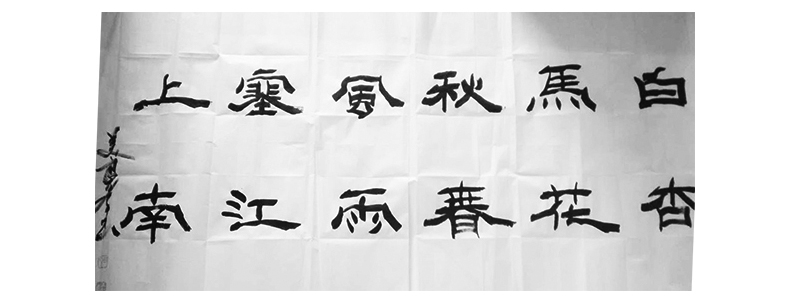 白馬秋風塞上
杏花春雨江南